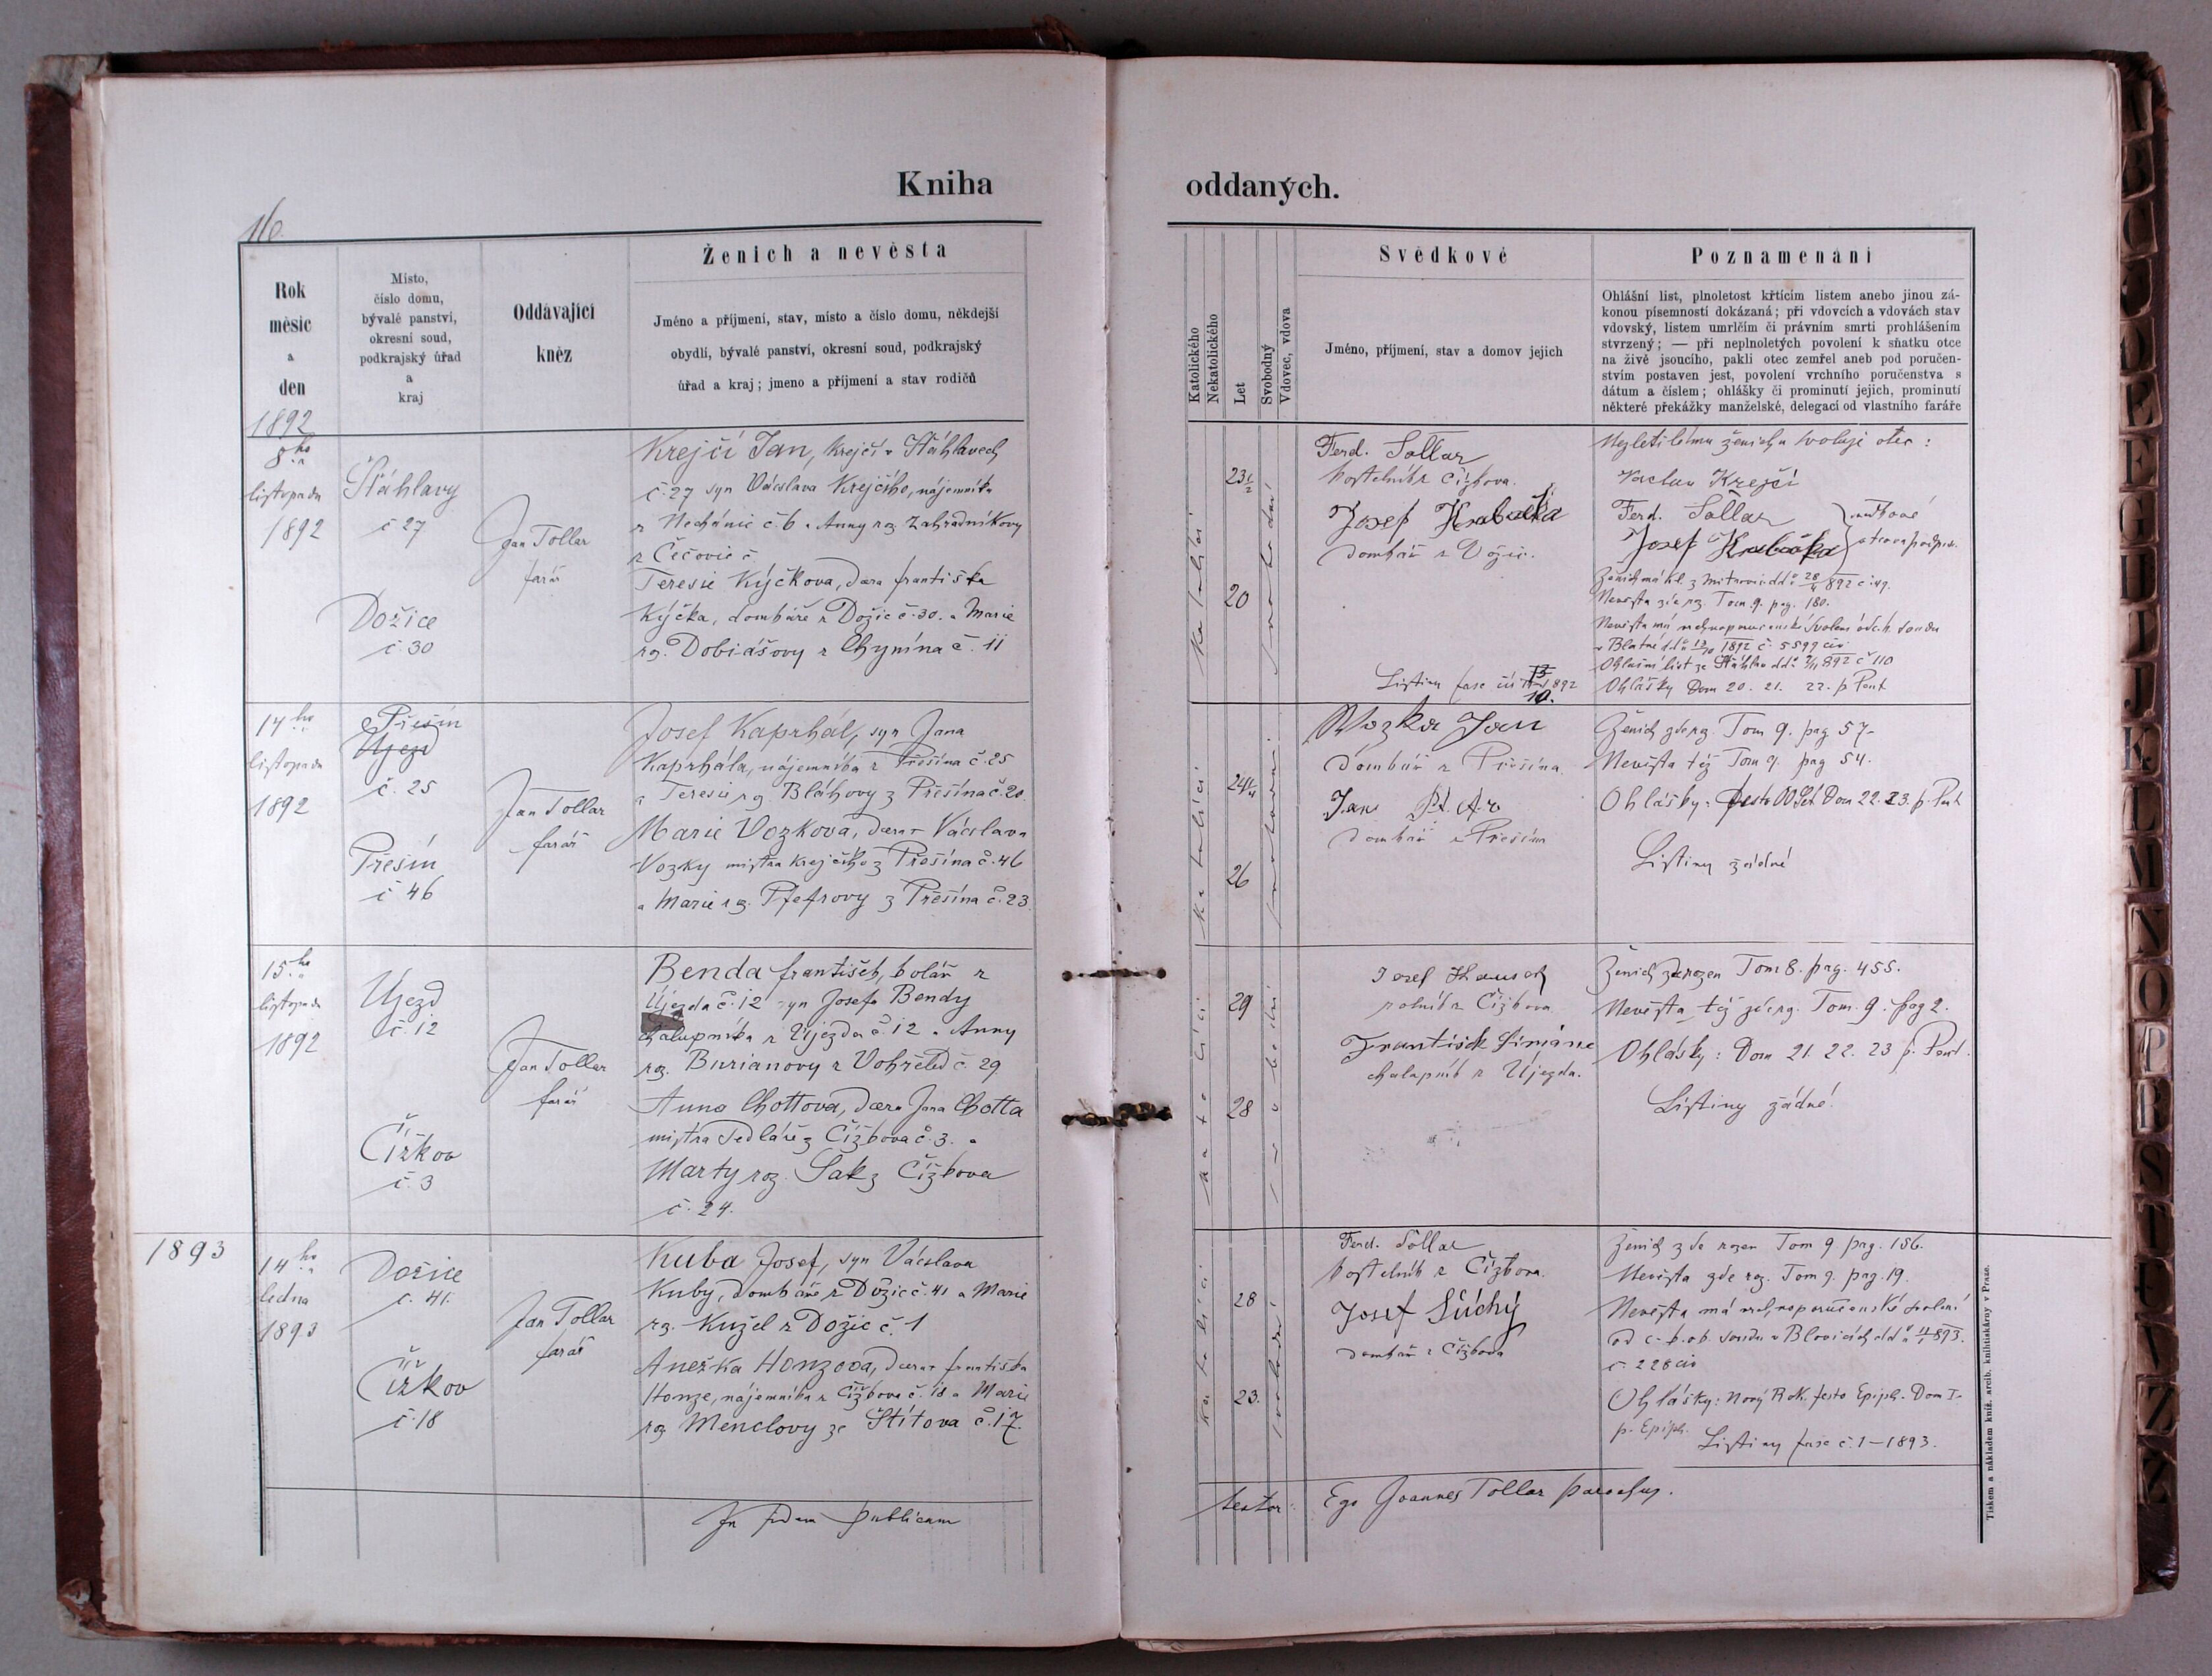 Kniha
oddaných.
116.
Rok
měsíc
a
den
1892
Místo,
číslo domu,
bývalé panství,
okresní soud,
podkrajský úřad
a
kraj
Oddávající
kněz
Ženich a nevěsta
Jméno a příjmení, stav, místo a číslo domu, někdejší
obydlí, bývalé panství, okresní soud, podkrajský
úřad a kraj; jmeno a příjmení a stav rodičů
8ho
listopadu
1892
Šťáhlavy
č 27
Dožice
č. 30
Jan Tollar
farář
Krejčí Jan, krejčí v Šťáhlavech
č. 27 syn Václava Krejčího, nájemníka
z Nechanic č. 6 a Anny roz Zahradníkovy
z Čečovic č
Teresie Kýčkova, dcera františka
Kýčka, domkáře z Dožic č. 30. a Marie
roz. Dobiášovy z Chynína č. 11
14ho
listopadu
1892
Přešín
Újezd
č. 25
Přešín
č 46
Jan Tollar
farář
Josef Kaprhál, syn Jana
Kaprhála, nájemníka z Přešína č. 25
a Teresie roz. Bláhovy z Přešína č. 20.
Marie Vozkova, dcera Václava
Vozky mistra krejčího z Přešína č. 46
a Marie roz. Pfefrovy z Přešína č. 23.
15ho
listopadu
1892
Újezd
č. 12
Čížkov
č. 3
Jan Tollar
farář
Benda františek, kolář z
Újezda č. 12 syn Josefa Bendy
chalupníka z Újezda č. 12 a Anny
roz. Burianovy z Vohřeled č. 29
Anna Chottova, dcera Jana Chotta
mistra sedláře z Čížkova č. 3. a
Marty roz. Sak z Čížkova
č. 24.
1893
14ho
ledna
1893
Dožice
č. 41.
Čížkov
č. 18
Jan Tollar
farář
Kuba Josef, syn Václava
Kuby, domkáře z Dožic č. 41 a Marie
roz. Kužel z Dožic č. 1
Anežka Honzova, dcera františka
Honze, nájemníka z Čížkova č. 18 a Marie
roz Menclovy ze Štítova č. 17.
In fidem publicam
Katolického
Nekatolického
Let
Svobodný
Vdovec, vdova
Svědkové
Jméno, příjmení, stav a domov jejich
Poznamenání
Ohlášní list, plnoletost křtícím listem anebo jinou zá-
konou písemností dokázaná; při vdovcích a vdovách stav
vdovský, listem umrlčím či právním smrti prohlášením
stvrzený; — při neplnoletých povolení k sňatku otce
na živě jsoucího, pakli otec zemřel aneb pod poručen-
stvím postaven jest, povolení vrchního poručenstva s
dátum a číslem; ohlášky či prominutí jejich, prominutí
některé překážky manželské, delegací od vlastního faráře
katoličtí
23½
20
Ferd. Tollar
kostelník z Čížkova.
Josef Hrabačka
domkář z Dožic.
Nezletilému ženichu svoluje otec:
Václav Krejčí
Ferd. Tollar
Josef Hrabačka
svědkové
Nevěsta zde roz. Tom. 9. pag. 180.
v Blatné 1892 č. 5599 civ
Ohlašní list ze Šťáhlav 892 č 110
Ohlášky Dom 20. 21. 22. p Pent
Listiny fasc 892
10.
katoličtí
24¼
26
Wozka Jan
domkář z Přešína.
Jan
domkář z Přešína
Ženich zde roz. Tom 9. pag 57-
Nevěsta též Tom 9. pag 54.
Ohlášky: festo OO SS Dom 22. 23. p. Pent
Listiny žádné
katoličtí
29
28
svobodní
Josef
rolník z Čížkova
František
chalupník z Újezda.
Ženich zde rozen Tom 8. pag. 455.
Nevěsta též zde roz. Tom. 9. pag 2.
Ohlásky: Dom 21. 22. 23 p. Pent.
Listiny žádné!
katolíci
28
23.
svobodní
Ferd. Tollar
kostelník z Čížkova.
Josef Súchý
domkář z Čížkova
Ženich zde rozen Tom 9 pag. 186.
Nevěsta zde roz. Tom 9. pag. 19.
Nevěsta má vrchnoporučenské svolení
od c. k. ok. soudu v Blovicích 893.
č. 228 civ
Ohlásky: Nový Rok. festo Epiph. Dom I.
p. Epiph.
Listiny fasc č. 1 - 1893.
testor:
Ego Joannes Tollar parochus.
Tiskem a nákladem kníž. arcib. knihtiskárny v Praze.